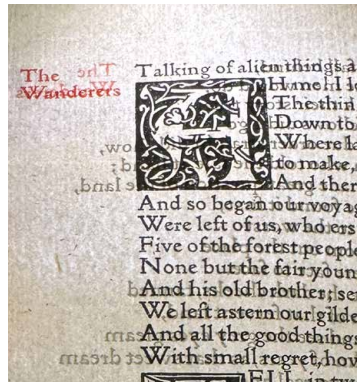 The
Wanderers
Talking of alien things a
AH me! I
The thin
Down to
Where la
to make,
And ther
And so began our voyag
Were left of us, who ers
Five of the forest people
None but the fair youn
And his old brother; se
We left astern our gilde
And all the good things
With small regret, how
ELL, in tw